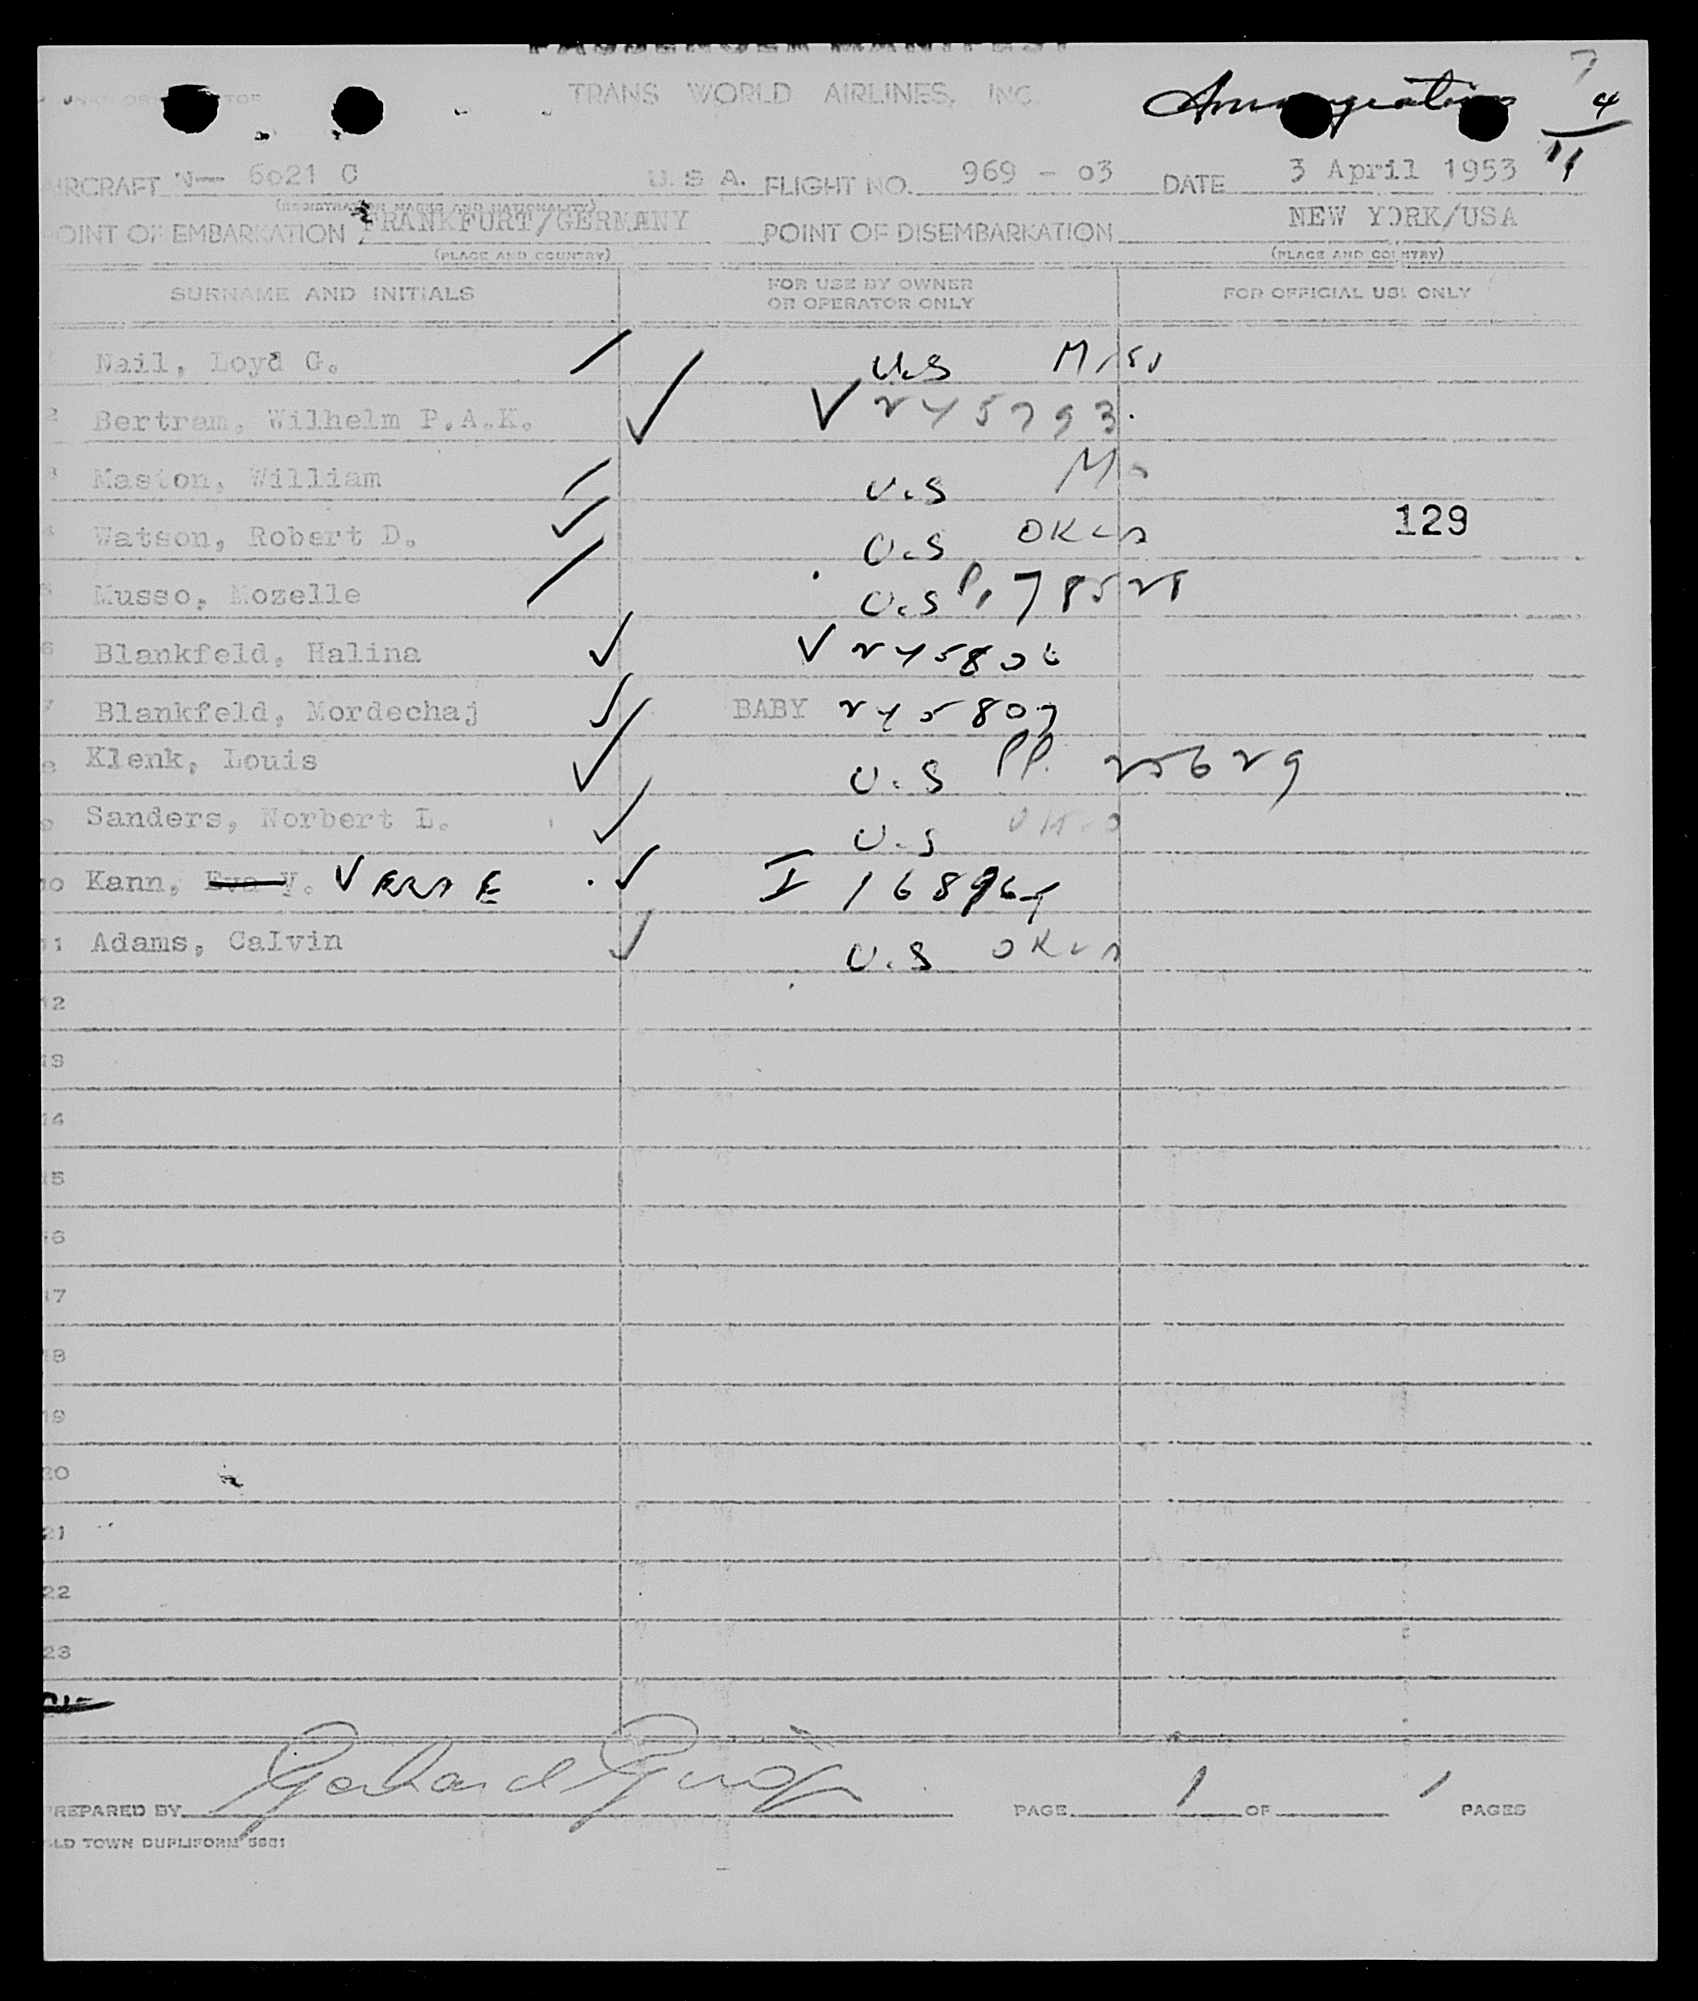 PASSENGER MANIFEST
TRANS WORLD AIRLINES, INC.
Immigration
7
4
11
AIRCRAFT N— 6021 C U.S A. FLIGHT NO. 969 - 03 DATE 3 April 1953
(REGISTRATION MARKS AND NATIONALITY)
POINT OF EMBARKATION FRANKFURT/GERMANY POINT OF DISEMBARKATION NEW YORK/USA
(PLACE AND COUNTRY) (PLACE AND COUNTRY)
SURNAME AND INITIALS FOR USE BY OWNER OR OPERATOR ONLY FOR OFFICIAL USE ONLY
1 Nail, Loyd G. U.S Miss
2 Bertram, Wilhelm P.A.K. V 245793.
3 Maston, William U.S Mo
4 Watson, Robert D. U.S OKLA 129
5 Musso, Mozelle U.S P. 78528
6 Blankfeld, Halina V 245806
7 Blankfeld, Mordechaj BABY 245807
8 Klenk, Louis U.S PP. 25629
9 Sanders, Norbert L. U.S
10 Kann, Eva V. I
11 Adams, Calvin U.S OKLA
12
13
14
15
16
17
18
19
20
21
22
23
PREPARED BY Gerhard PAGE 1 OF 1 PAGES
OLD TOWN DUPLIFORM 5681